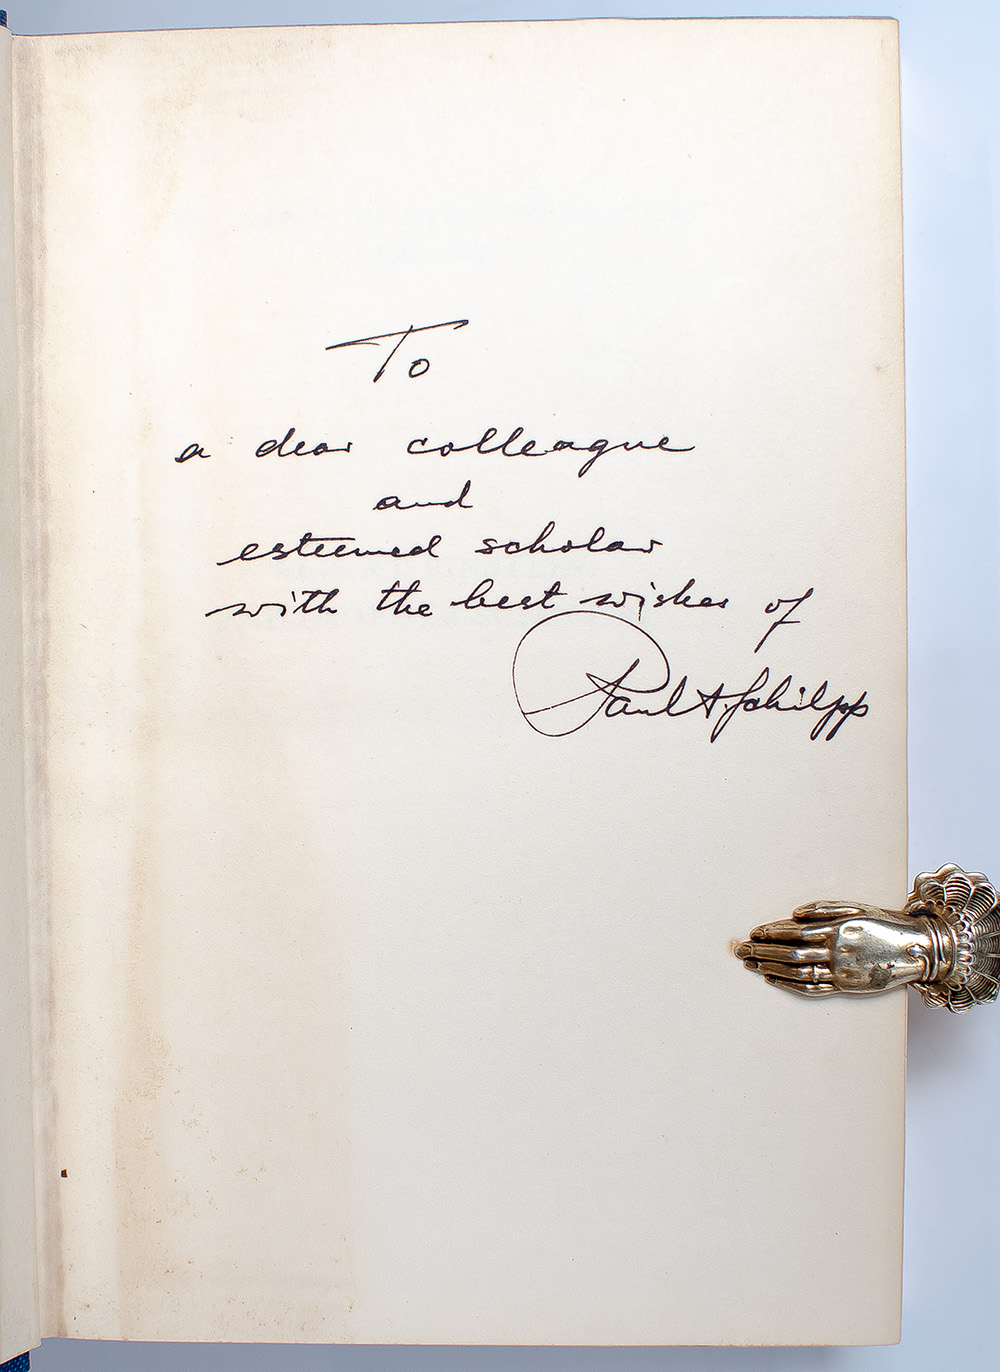 To
a dear colleague
and
esteemed scholar
with the best wishes of
Paul A. Schilpp